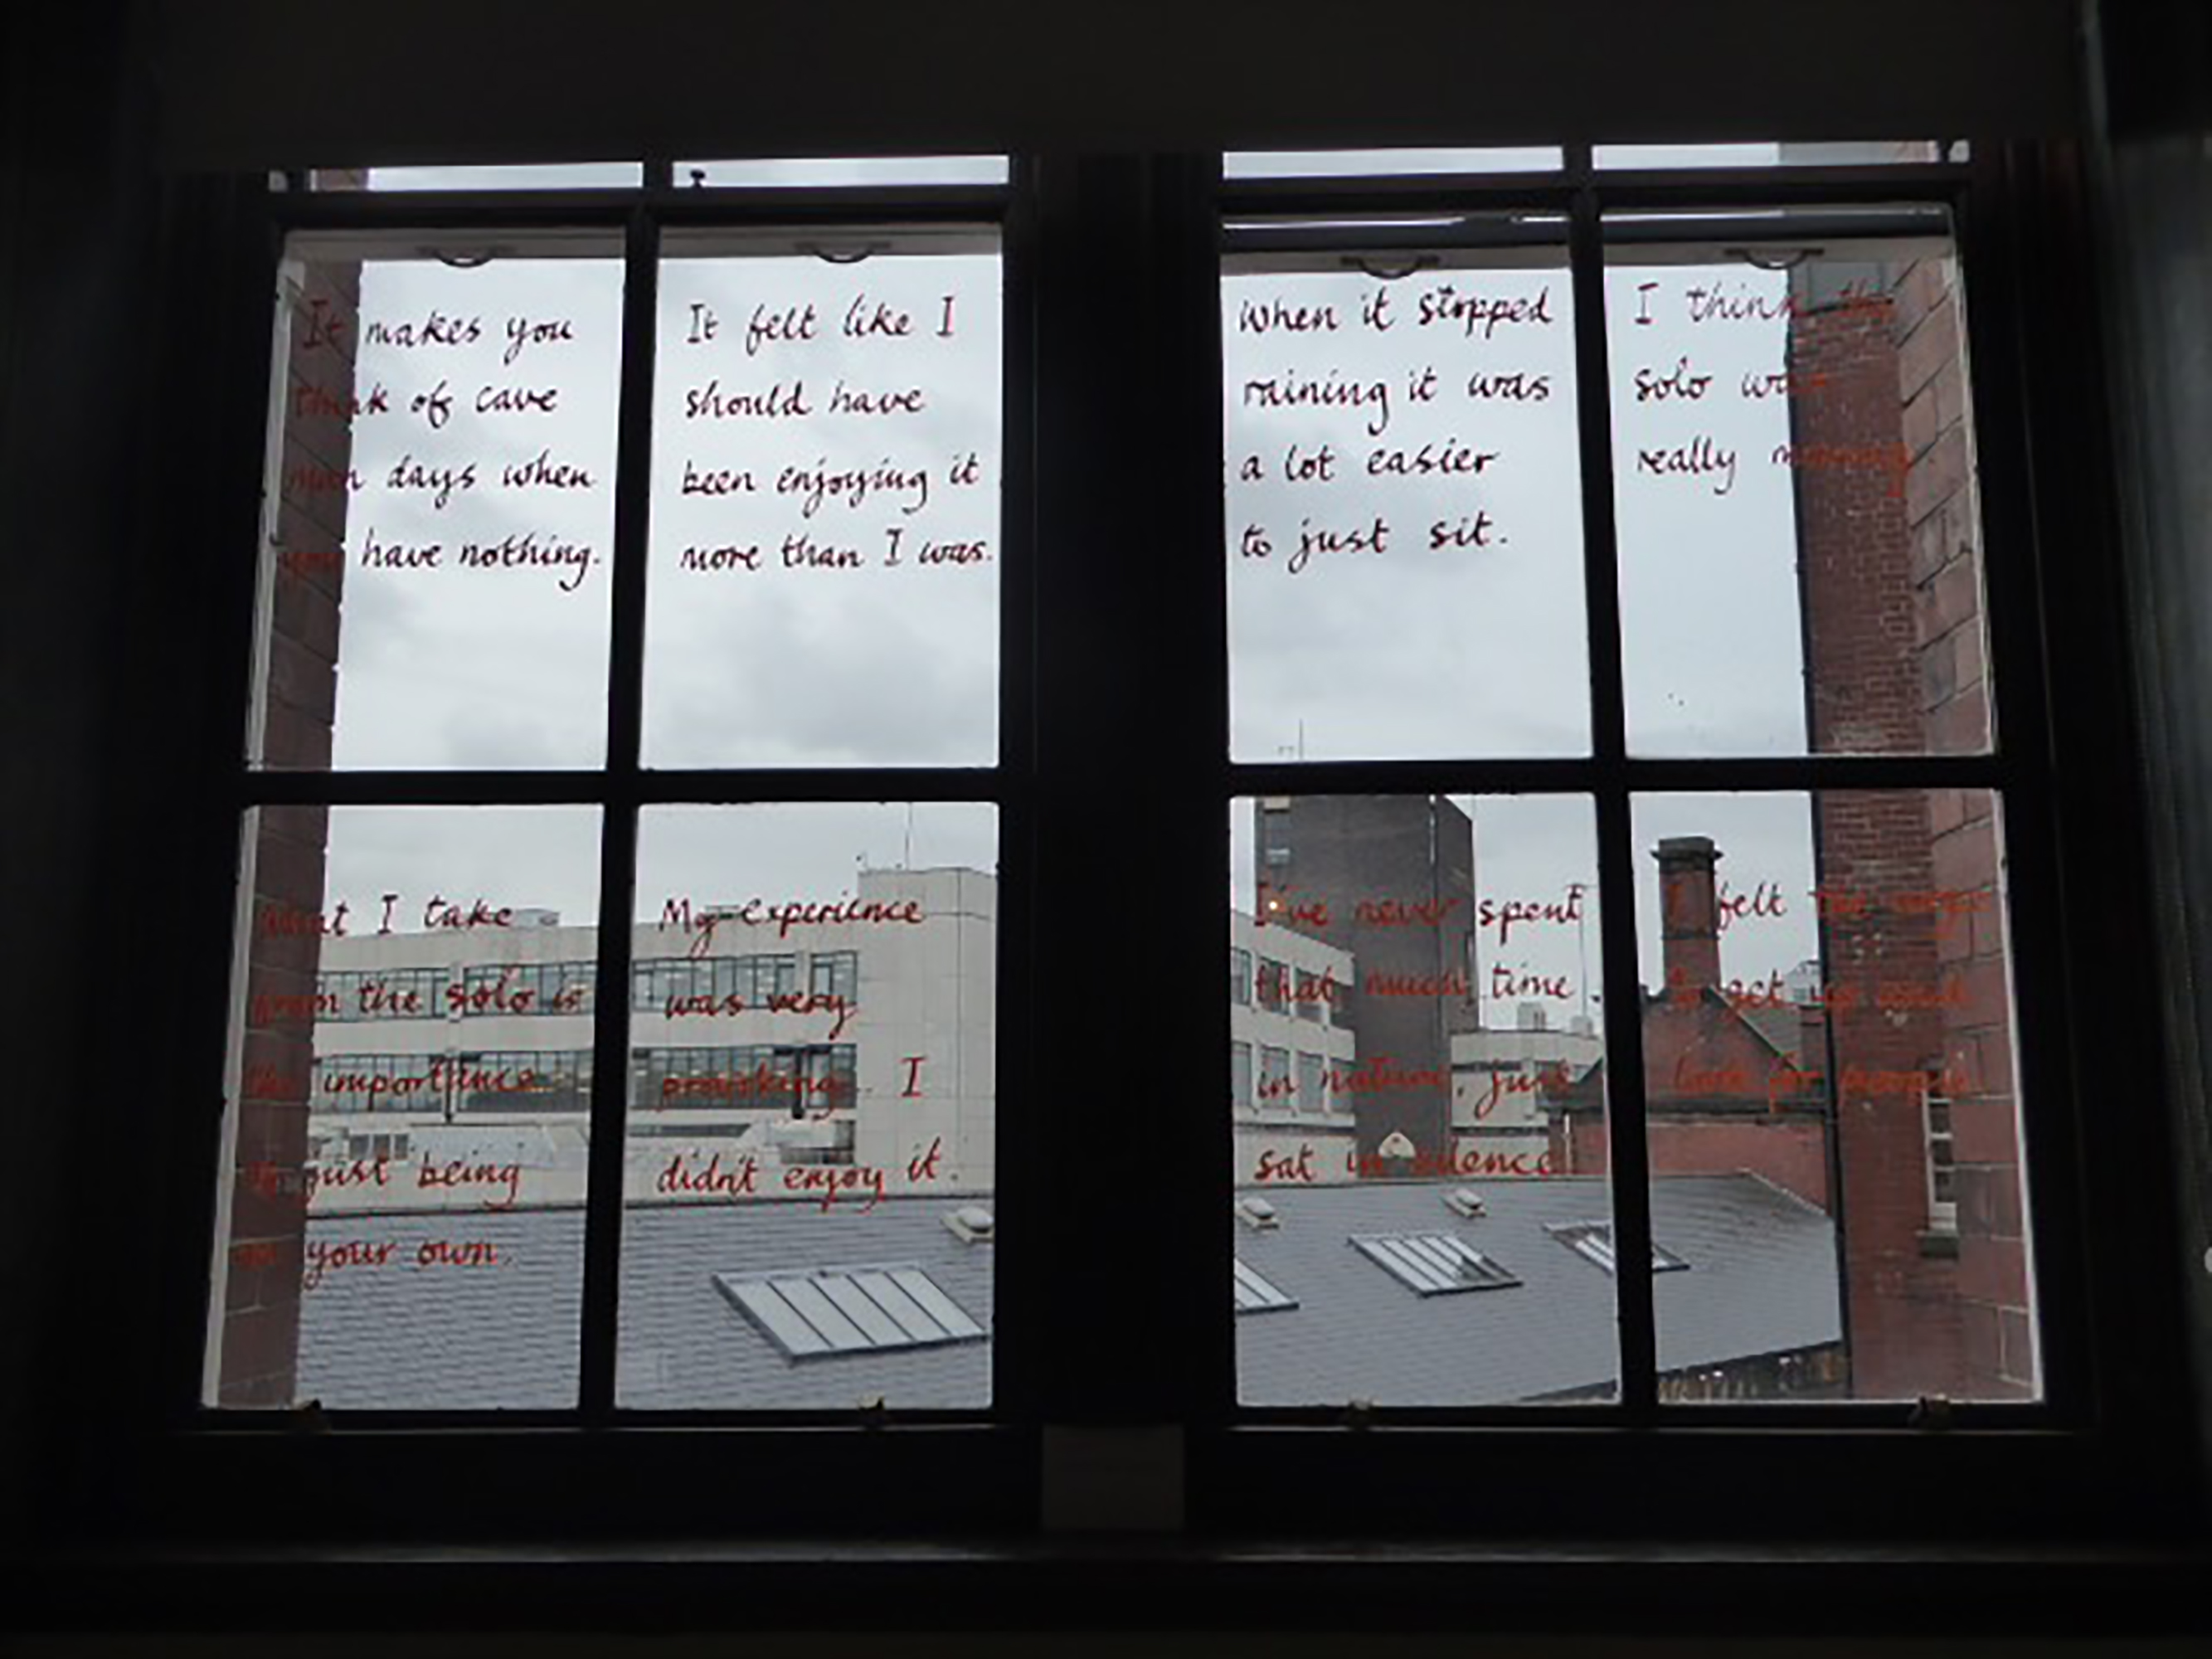 It makes you
think of cave
man days when
you have nothing.
It felt like I
should have
been enjoying it
more than I was.
When it stopped
raining it was
a lot easier
to just sit.
I think the
solo was
really
What I take
from the solo is
the importance
of just being
on your own.
My experience
was very
provoking. I
didn't enjoy it.
I've never spent
that much time
in nature, just
sat in silence
I felt the urge
to get up and
look for people